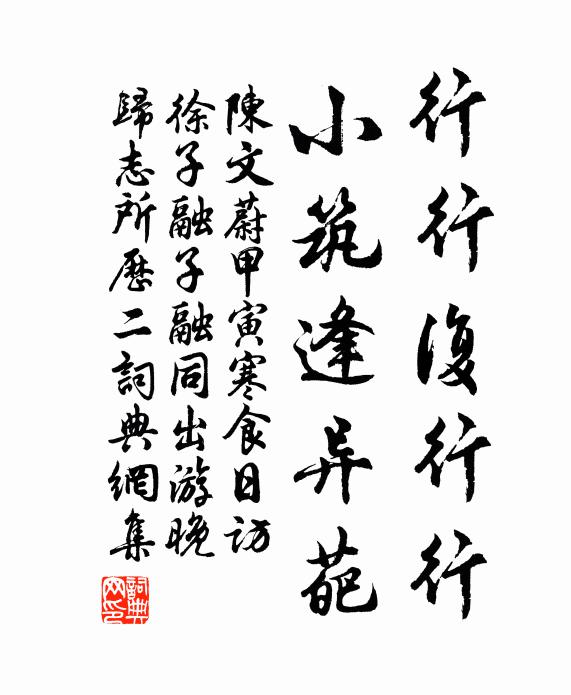 行行復行行
小筑逢异葩
陳文蔚甲寅寒食日访
徐子融子融同出游晚
歸志所歷二詞典網集
詞典
网印